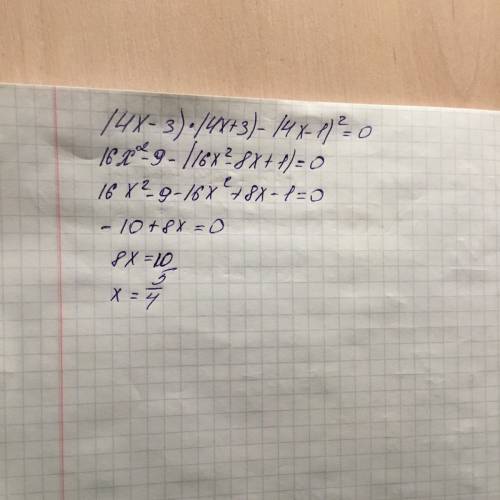 (4x-3)·(4x+3)-(4x-1)²=0
16x²-9-(16x²-8x+1)=0
16x²-9-16x²+8x-1=0
-10+8x=0
8x=10
x=5/4